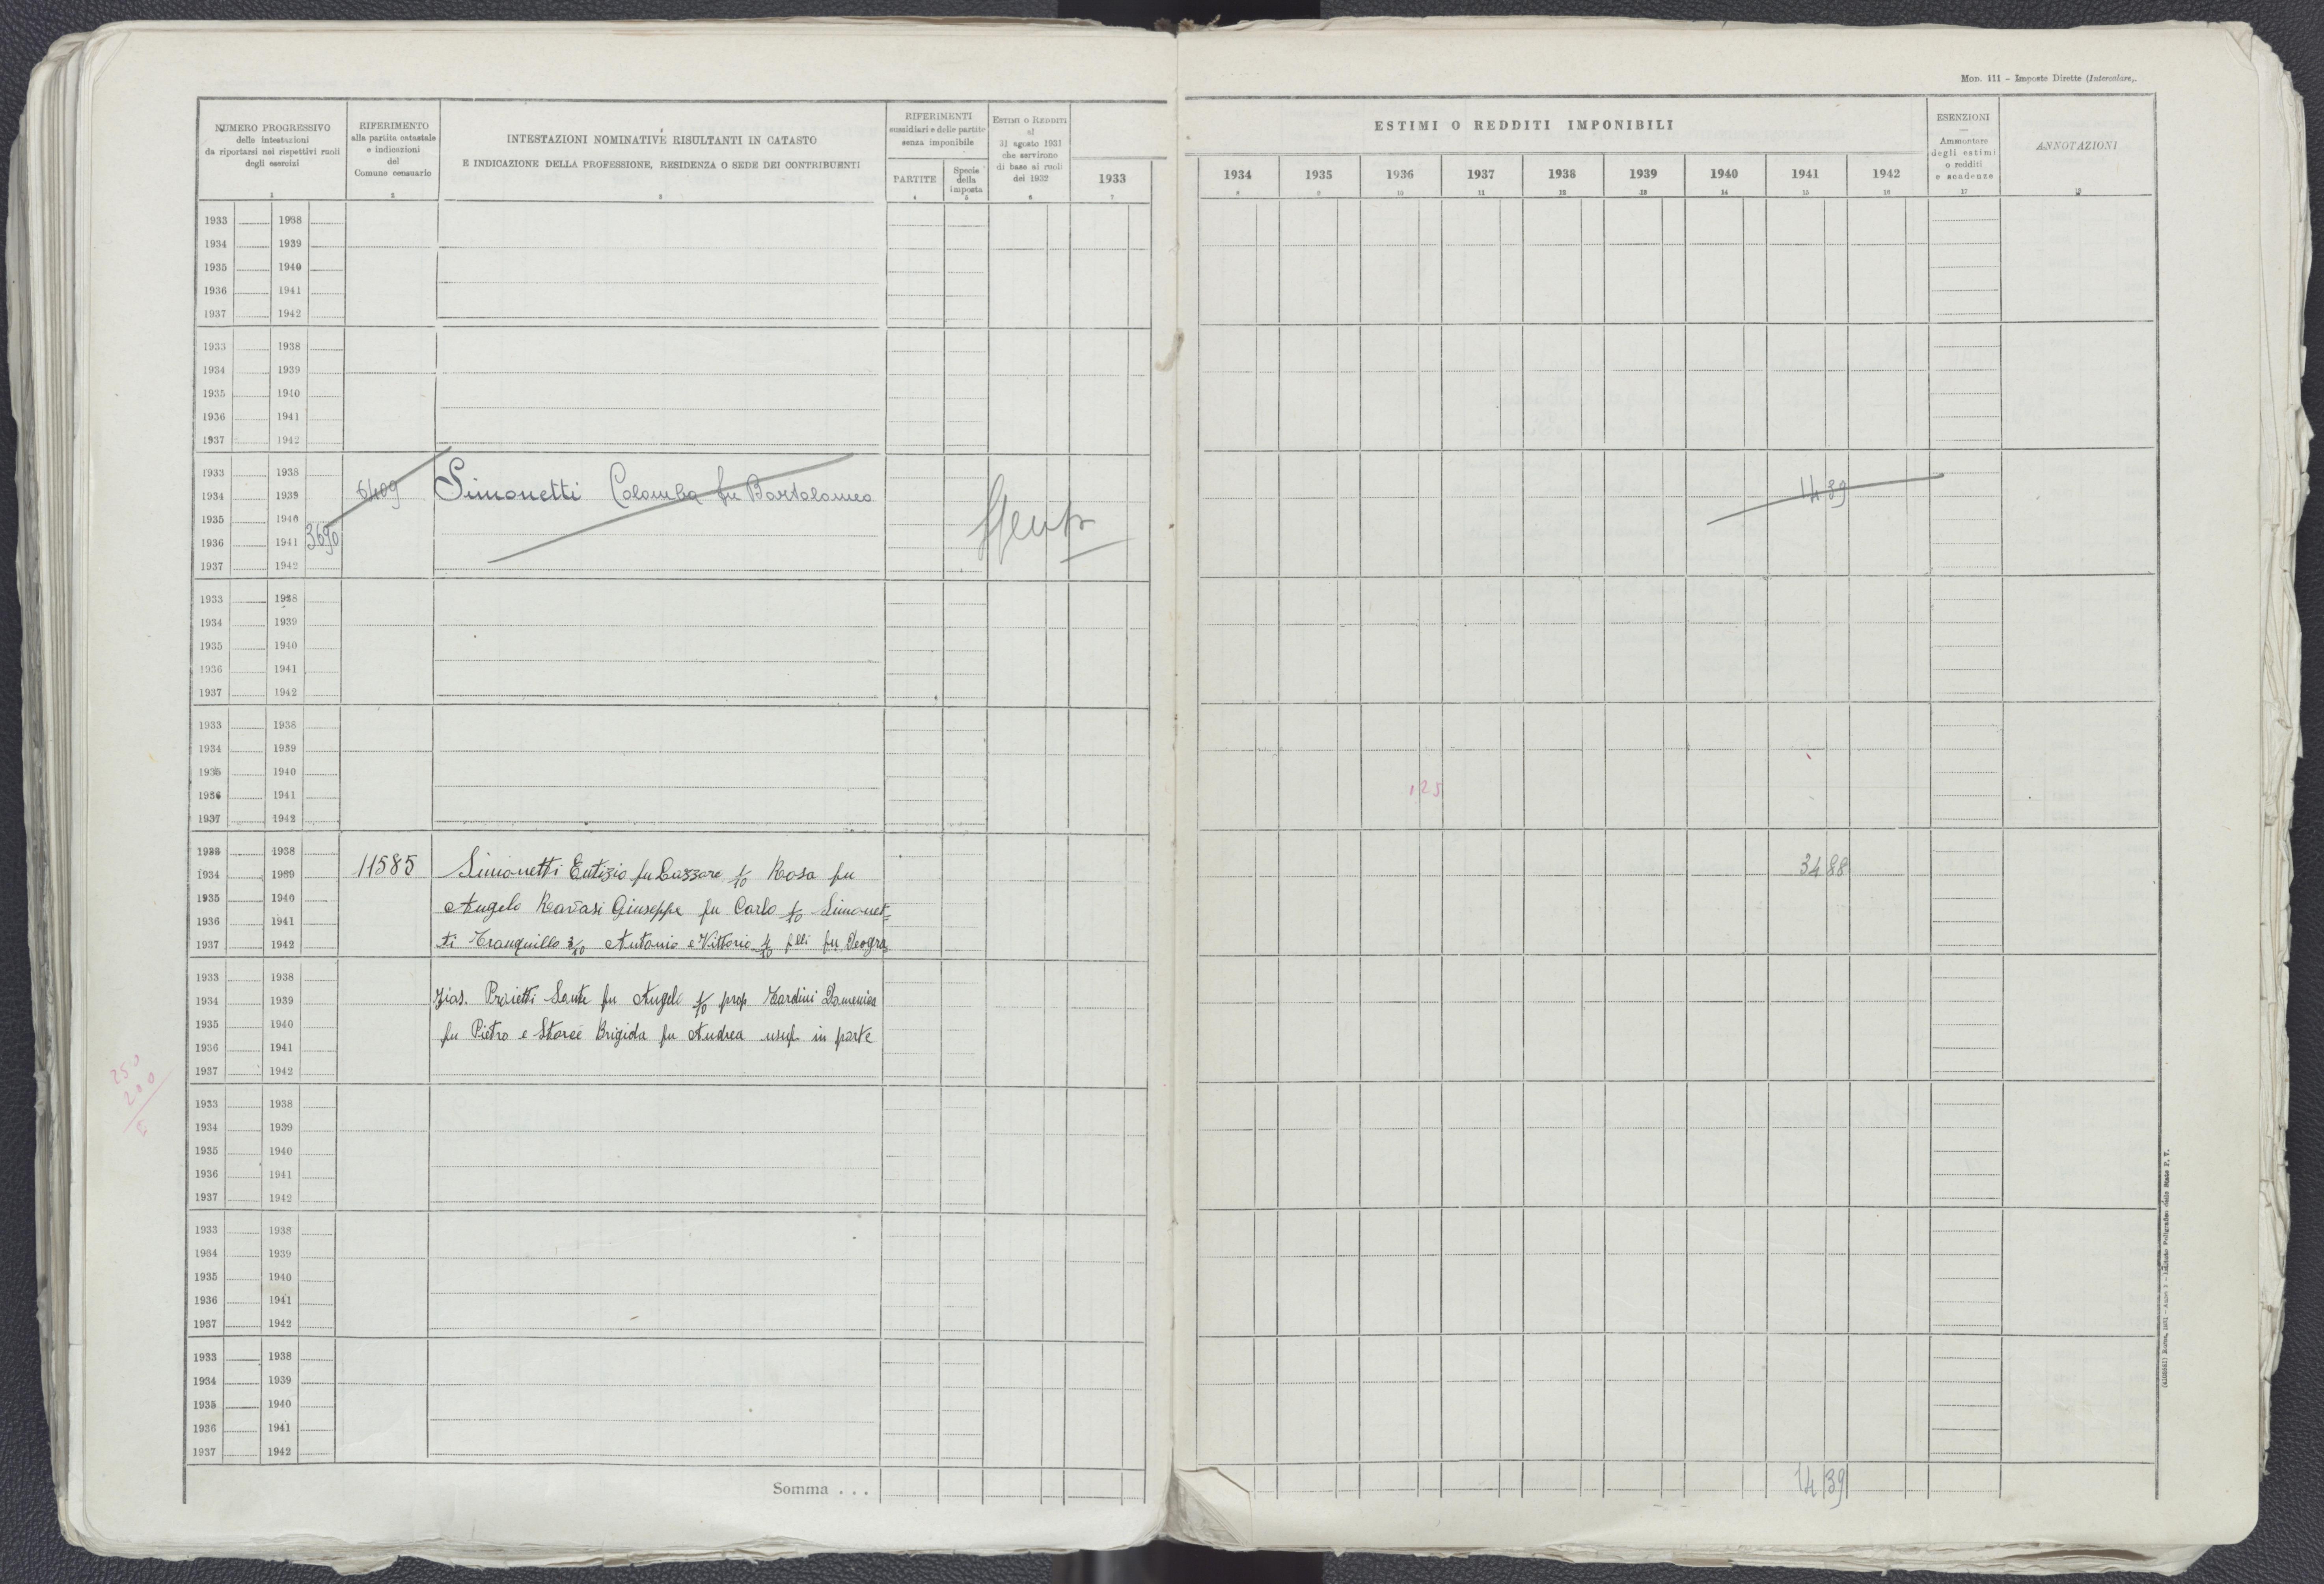 Mod. 111 - Imposte Dirette (Intercalare).
NUMERO PROGRESSIVO
delle intestazioni
da riportarsi nei rispettivi ruoli
degli esercizi
1
RIFERIMENTO
alla partita catastale
e indicazioni
del
Comune censuario
2
INTESTAZIONI NOMINATIVE RISULTANTI IN CATASTO
E INDICAZIONE DELLA PROFESSIONE, RESIDENZA O SEDE DEI CONTRIBUENTI
3
RIFERIMENTI
sussidiari e delle partite
senza imponibile
PARTITE
4
Specie
della
imposta
5
ESTIMI O REDDITI
al
31 agosto 1931
che servirono
di base ai ruoli
del 1932
6
1933
7
ESTIMI O REDDITI IMPONIBILI
1934 1935 1936 1937 1938 1939 1940 1941 1942
8 9 10 11 12 13 14 15 16
ESENZIONI
Ammontare
degli estimi
o redditi
e scadenze
17
ANNOTAZIONI
18
1933 1938
1934 1939
1935 1940
1936 1941
1937 1942
1933 1938
1934 1939
1935 1940
1936 1941
1937 1942
1933 1938
1934 1939 6409 Simonetti Colomba fu Bartolomeo 14 39
1935 1940
1936 1941 3690
1937 1942
1933 1938
1934 1939
1935 1940
1936 1941
1937 1942
1933 1938
1934 1939
1935 1940
1936 1941 125
1937 1942
1933 1938
1934 1939 11585 Simonetti Eutizio fu Lazzaro 1/10 Rosa fu 34 88
1935 1940 Angelo Ravasi Giuseppe fu Carlo 1/10 Simonet=
1936 1941
1937 1942 ti Tranquillo 3/10 Antonio e Vittorio 4/10 f.lli fu Deogra
1933 1938
1934 1939 zias. Proietti Sante fu Angelo 1/10 prop Nardini Domenica
1935 1940 fu Pietro e Storce Brigida fu Andrea usuf. in parte
1936 1941
1937 1942
250
200
1933 1938
1934 1939
1935 1940
1936 1941
1937 1942
1933 1938
1934 1939
1935 1940
1936 1941
1937 1942
1933 1938
1934 1939
1935 1940
1936 1941
1937 1942
Somma . . . 14 39